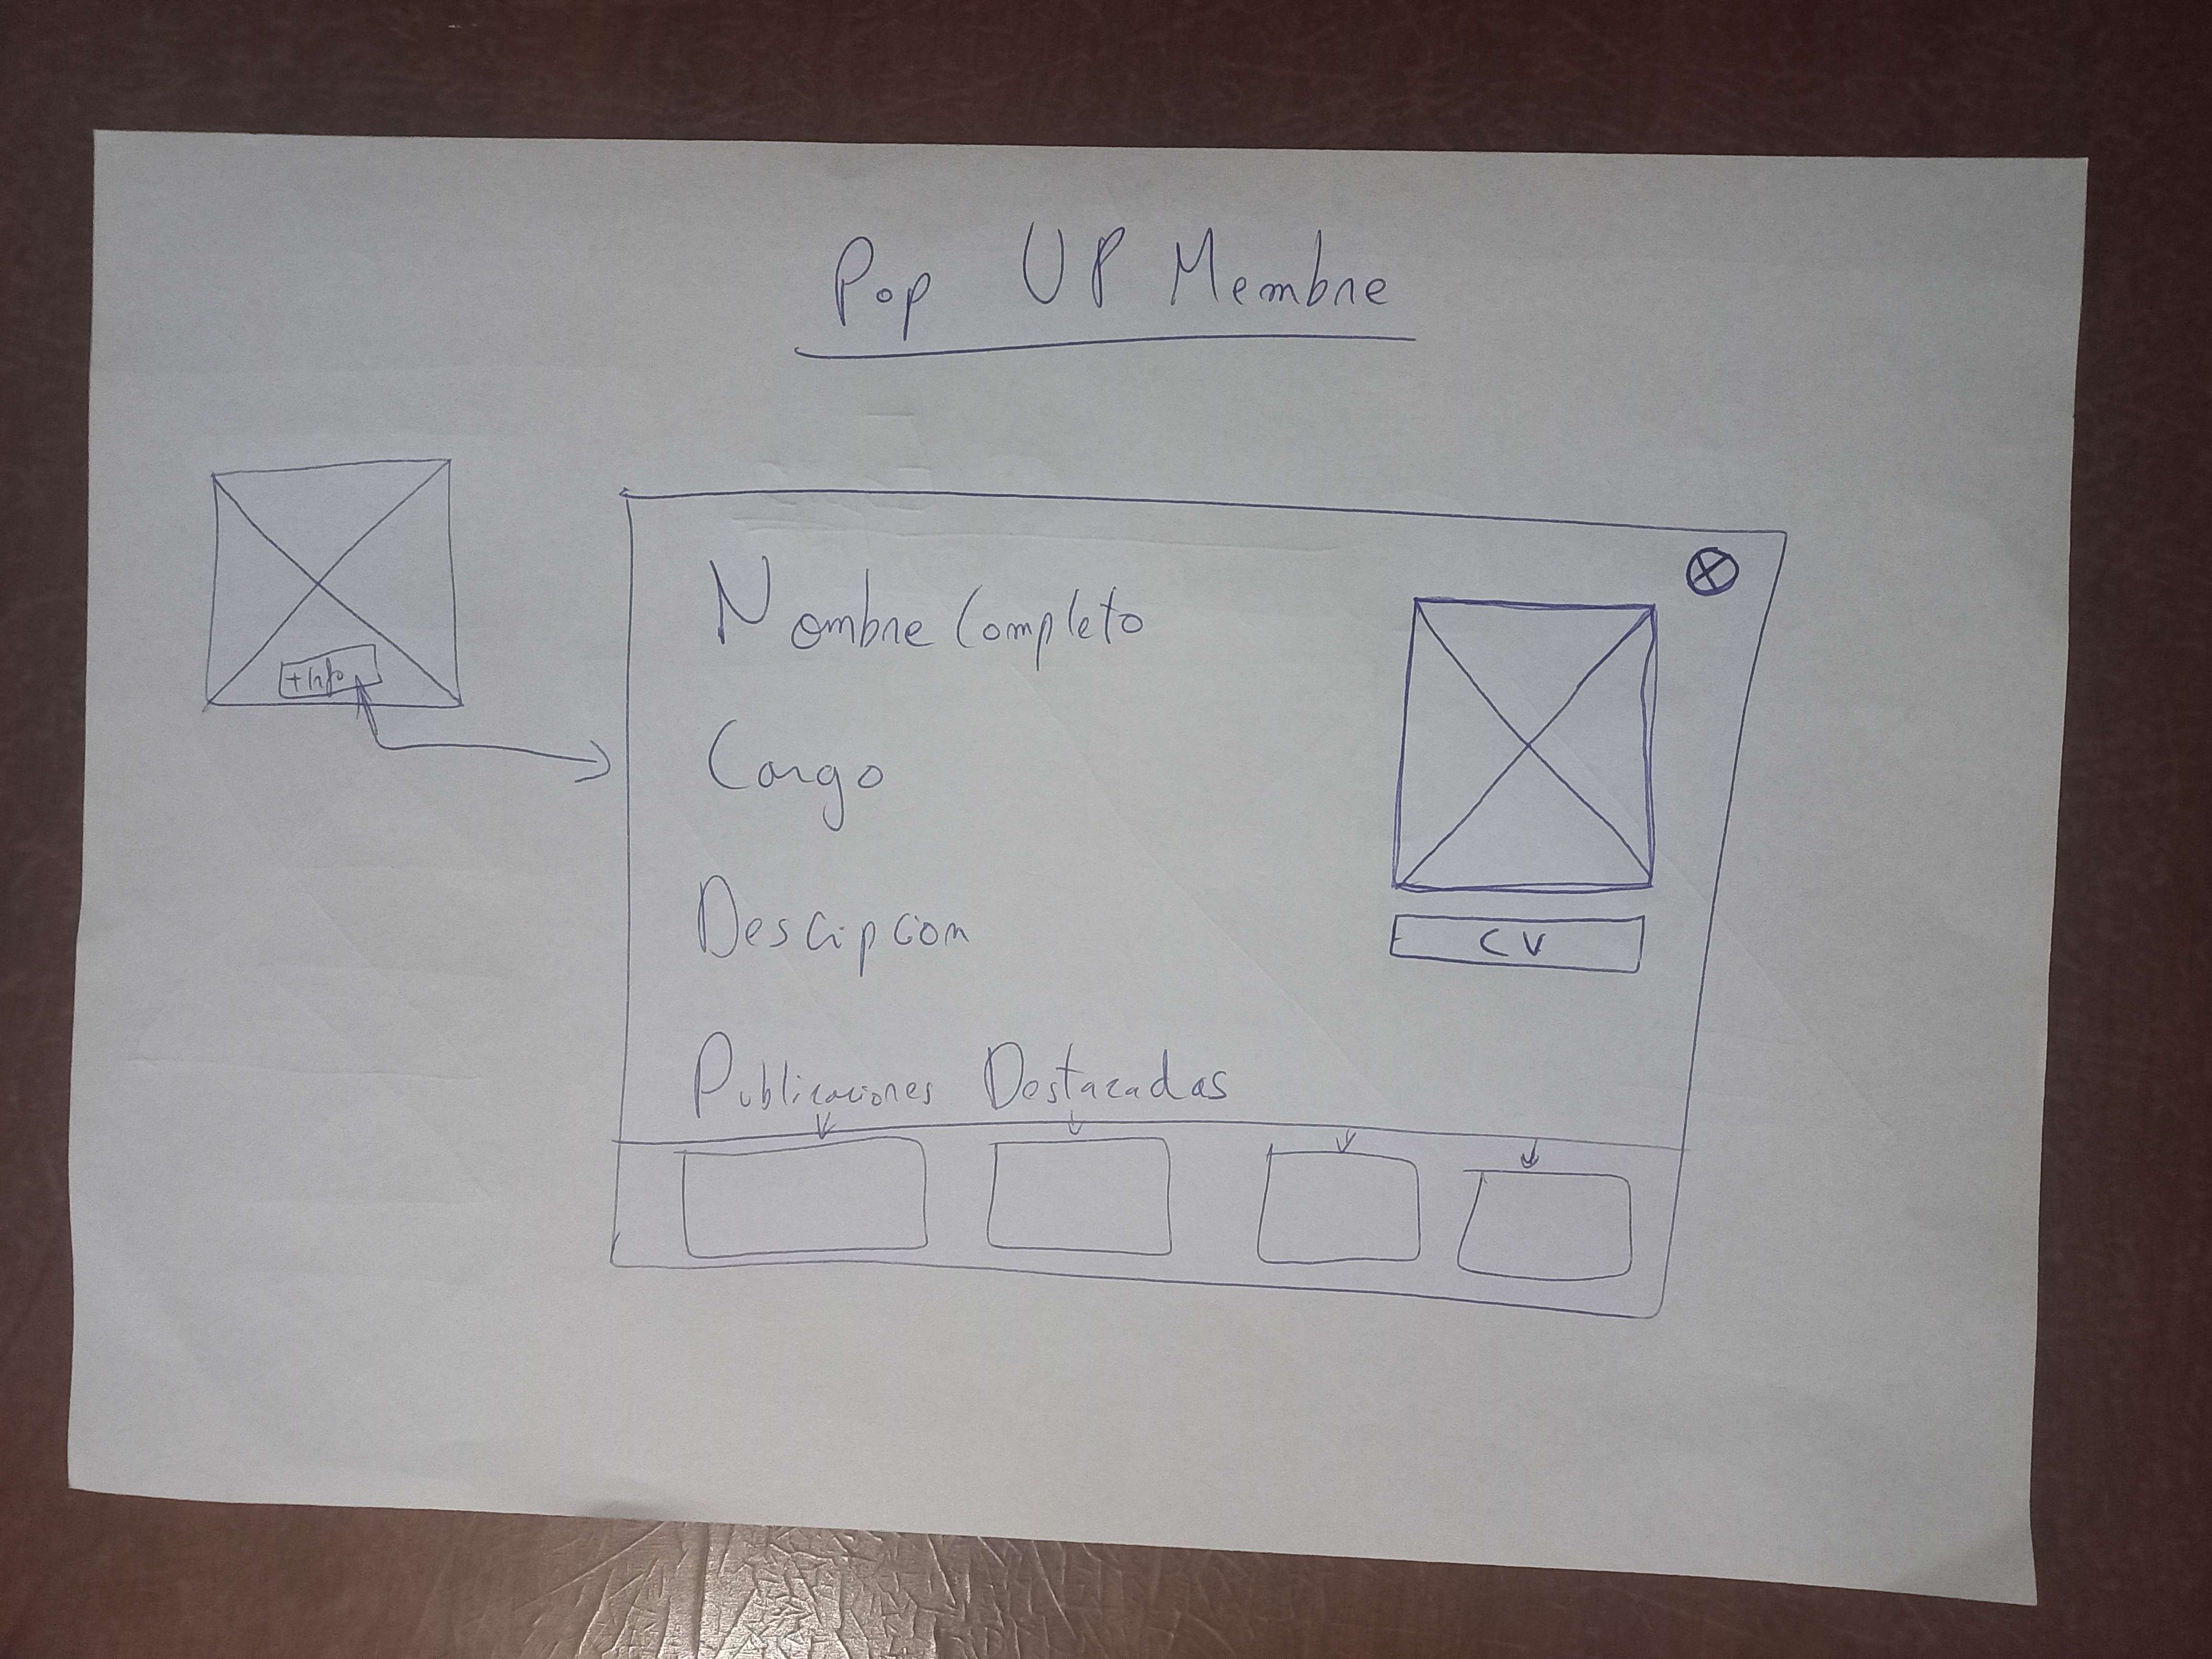 Pop UP Membre
+Info
Nombre Completo
Cargo
Descipcion
CV
Publicaciones Destacadas